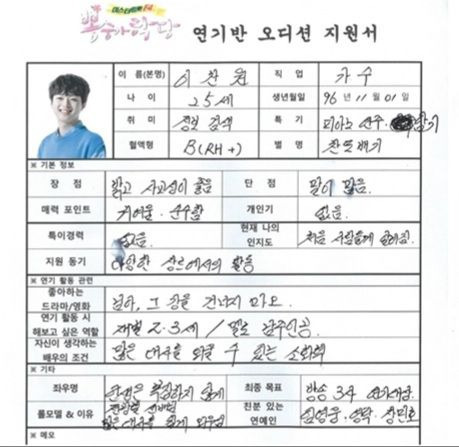 미스터트롯 F4
뽕숭아학당 연기반 오디션 지원서
이 름(본명) 이찬원 직 업 가수
나 이 25세 생년월일 96년 11월 01일
취 미 정보 검색 특 기 피아노 연주
혈액형 B(RH+) 별 명 찬또배기
※ 기본 정보
장 점 밝고 사교성이 좋음 단 점 말이 많음.
매력 포인트 귀여움·순수함 개인기 없음.
특이경력 없음. 현재 나의
인지도
지원 동기 다양한 장르에서의 활동
※ 연기 활동 관련
좋아하는
드라마/영화 님아, 그 강을 건너지 마오.
연기 활동 시
해보고 싶은 역할 재벌 2·3세 / 멜로 남주인공
자신이 생각하는
배우의 조건 많은 대사를 외울 수 있는
※ 기타
좌우명 최종 목표 방송 3사
롤모델 & 이유 친분 있는
연예인 임영웅·영탁·장민호
※ 메모